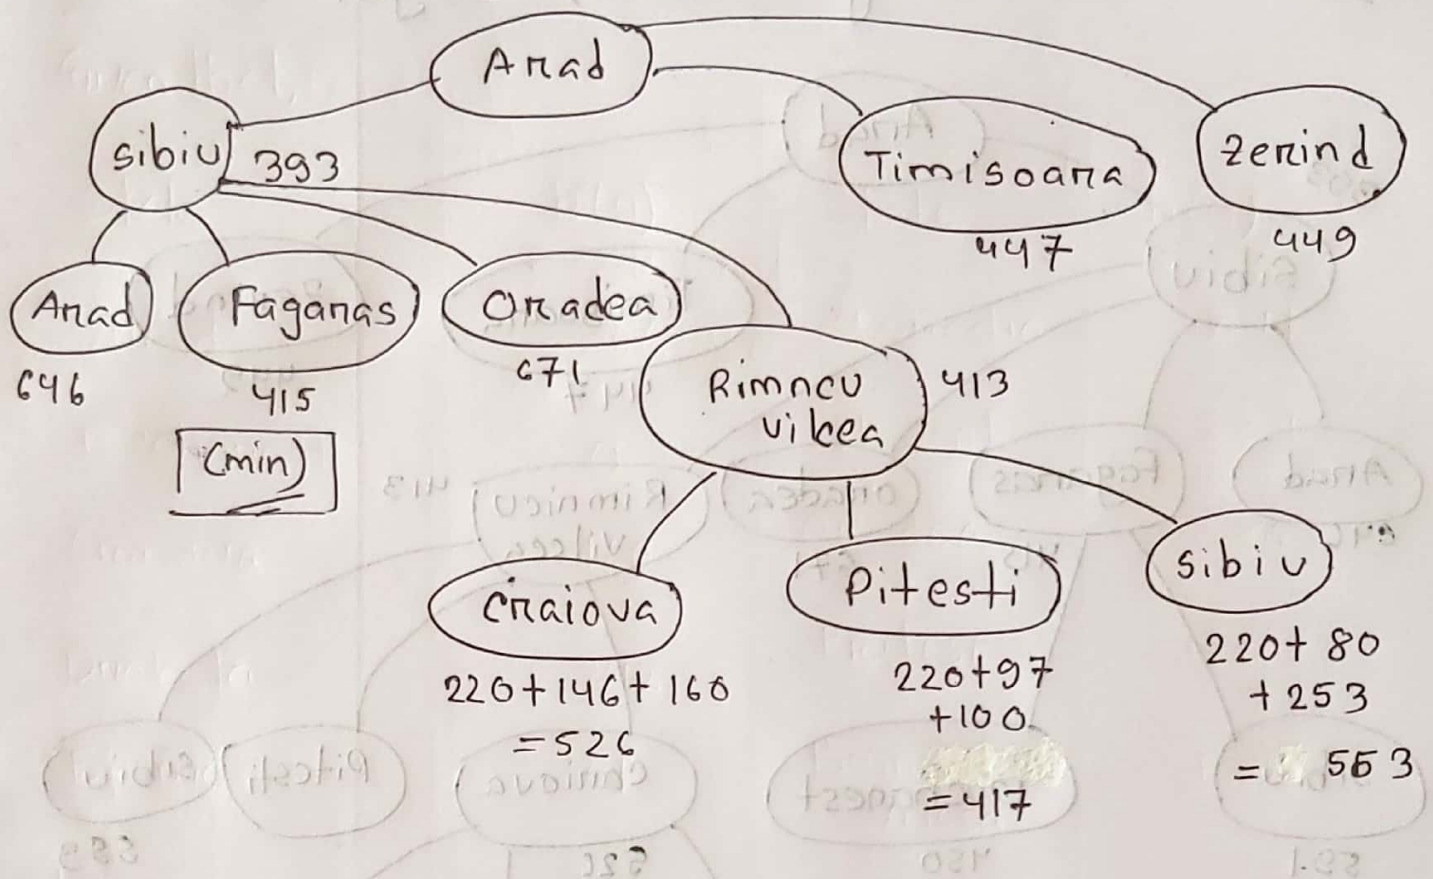 Arad
Sibiu 393
Timisoara
447
Zerind
449
Arad
646
Fagaras
415
(min)
Oradea
671
Rimncu
vilcea
413
Craiova
220+146+160
=526
Pitesti
220+97
+100
=417
Sibiu
220+80
+253
= 553